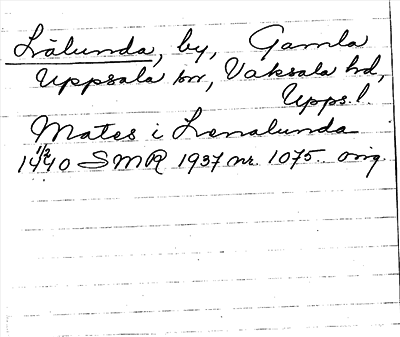 Lålunda, by, Gamla
Uppsala sn, Vaksala hd,
Upps. l.
Mates i Lenalunda
14 1/2 40 SMR 1937 nr. 1075. orig.